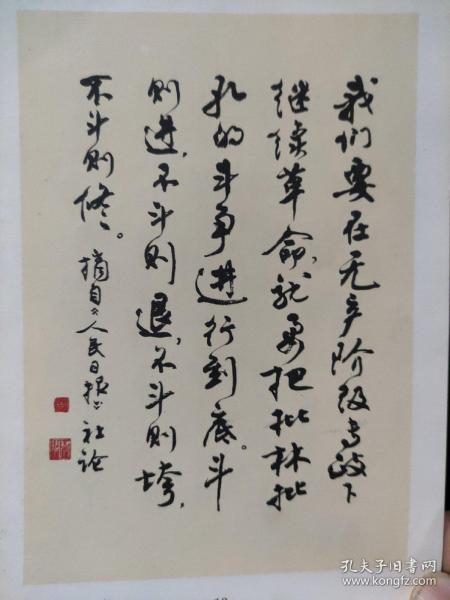 我们要在无产阶级专政下
继续革命，就要把批林批
孔的斗争进行到底。斗
则进，不斗则退，不斗则垮，
不斗则修。
摘自《人民日报》社论
孔夫子旧书网
www.kongfz.com